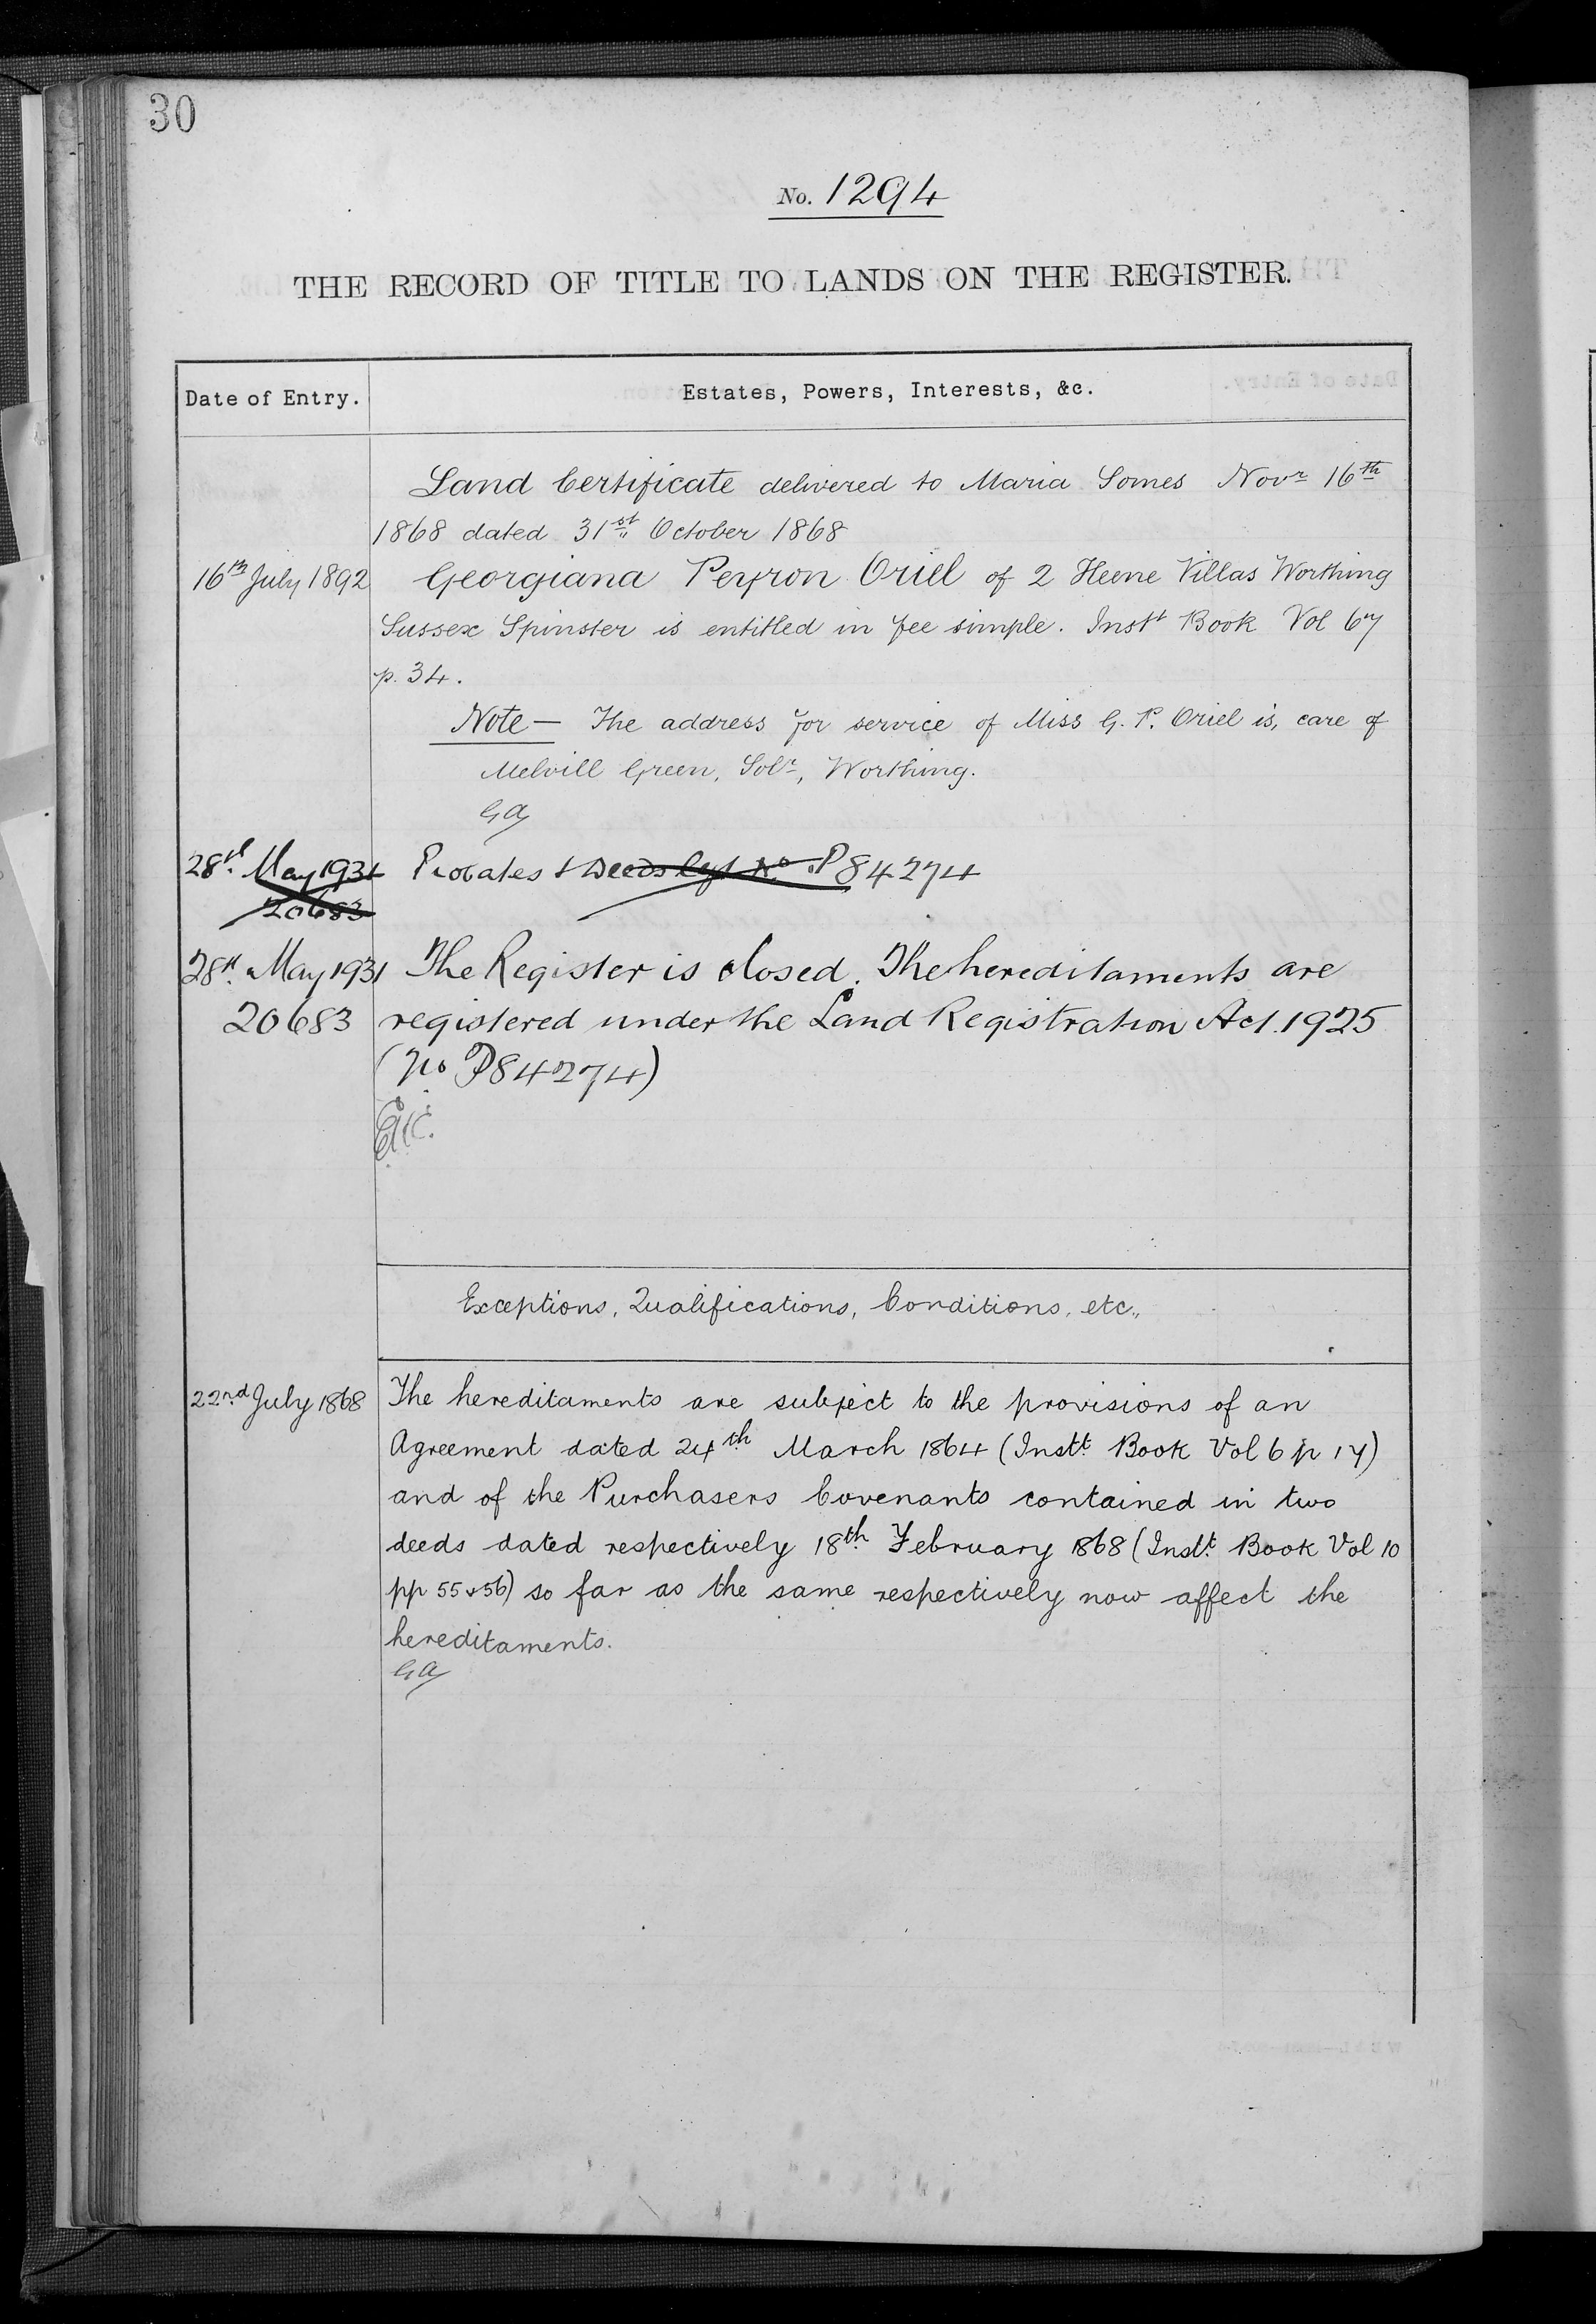 30
No. 1294
THE RECORD OF TITLE TO LANDS ON THE REGISTER.
Date of Entry.
Estates, Powers, Interests, &c.
Land Certificate delivered to Maria Somes Novr 16th
1868 dated 31st October 1868
16th July 1892 Georgiana Peyron Oriel of 2 Heene Villas Worthing
Sussex Spinster is entitled in fee simple. Instt Book Vol 67
p. 34.
Note — The address for service of Miss G. P. Oriel is, care of
Melvill Green, Solr, Worthing.
GA
28th May 1931 Probates & Deeds No P84274
20683
28th May 1931 The Register is closed. The hereditaments are
20683 registered under the Land Registration Act. 1925
(No P84274)
Exceptions, Qualifications, Conditions, etc.,
22nd July 1868 The hereditaments are subject to the provisions of an
Agreement dated 24th March 1864 (Instt Book Vol 6 p 17)
and of the Purchasers Covenants contained in two
deeds dated respectively 18th February 1868 (Instt Book Vol 10
pp 55 & 56) so far as the same respectively now affect the
hereditaments.
GA